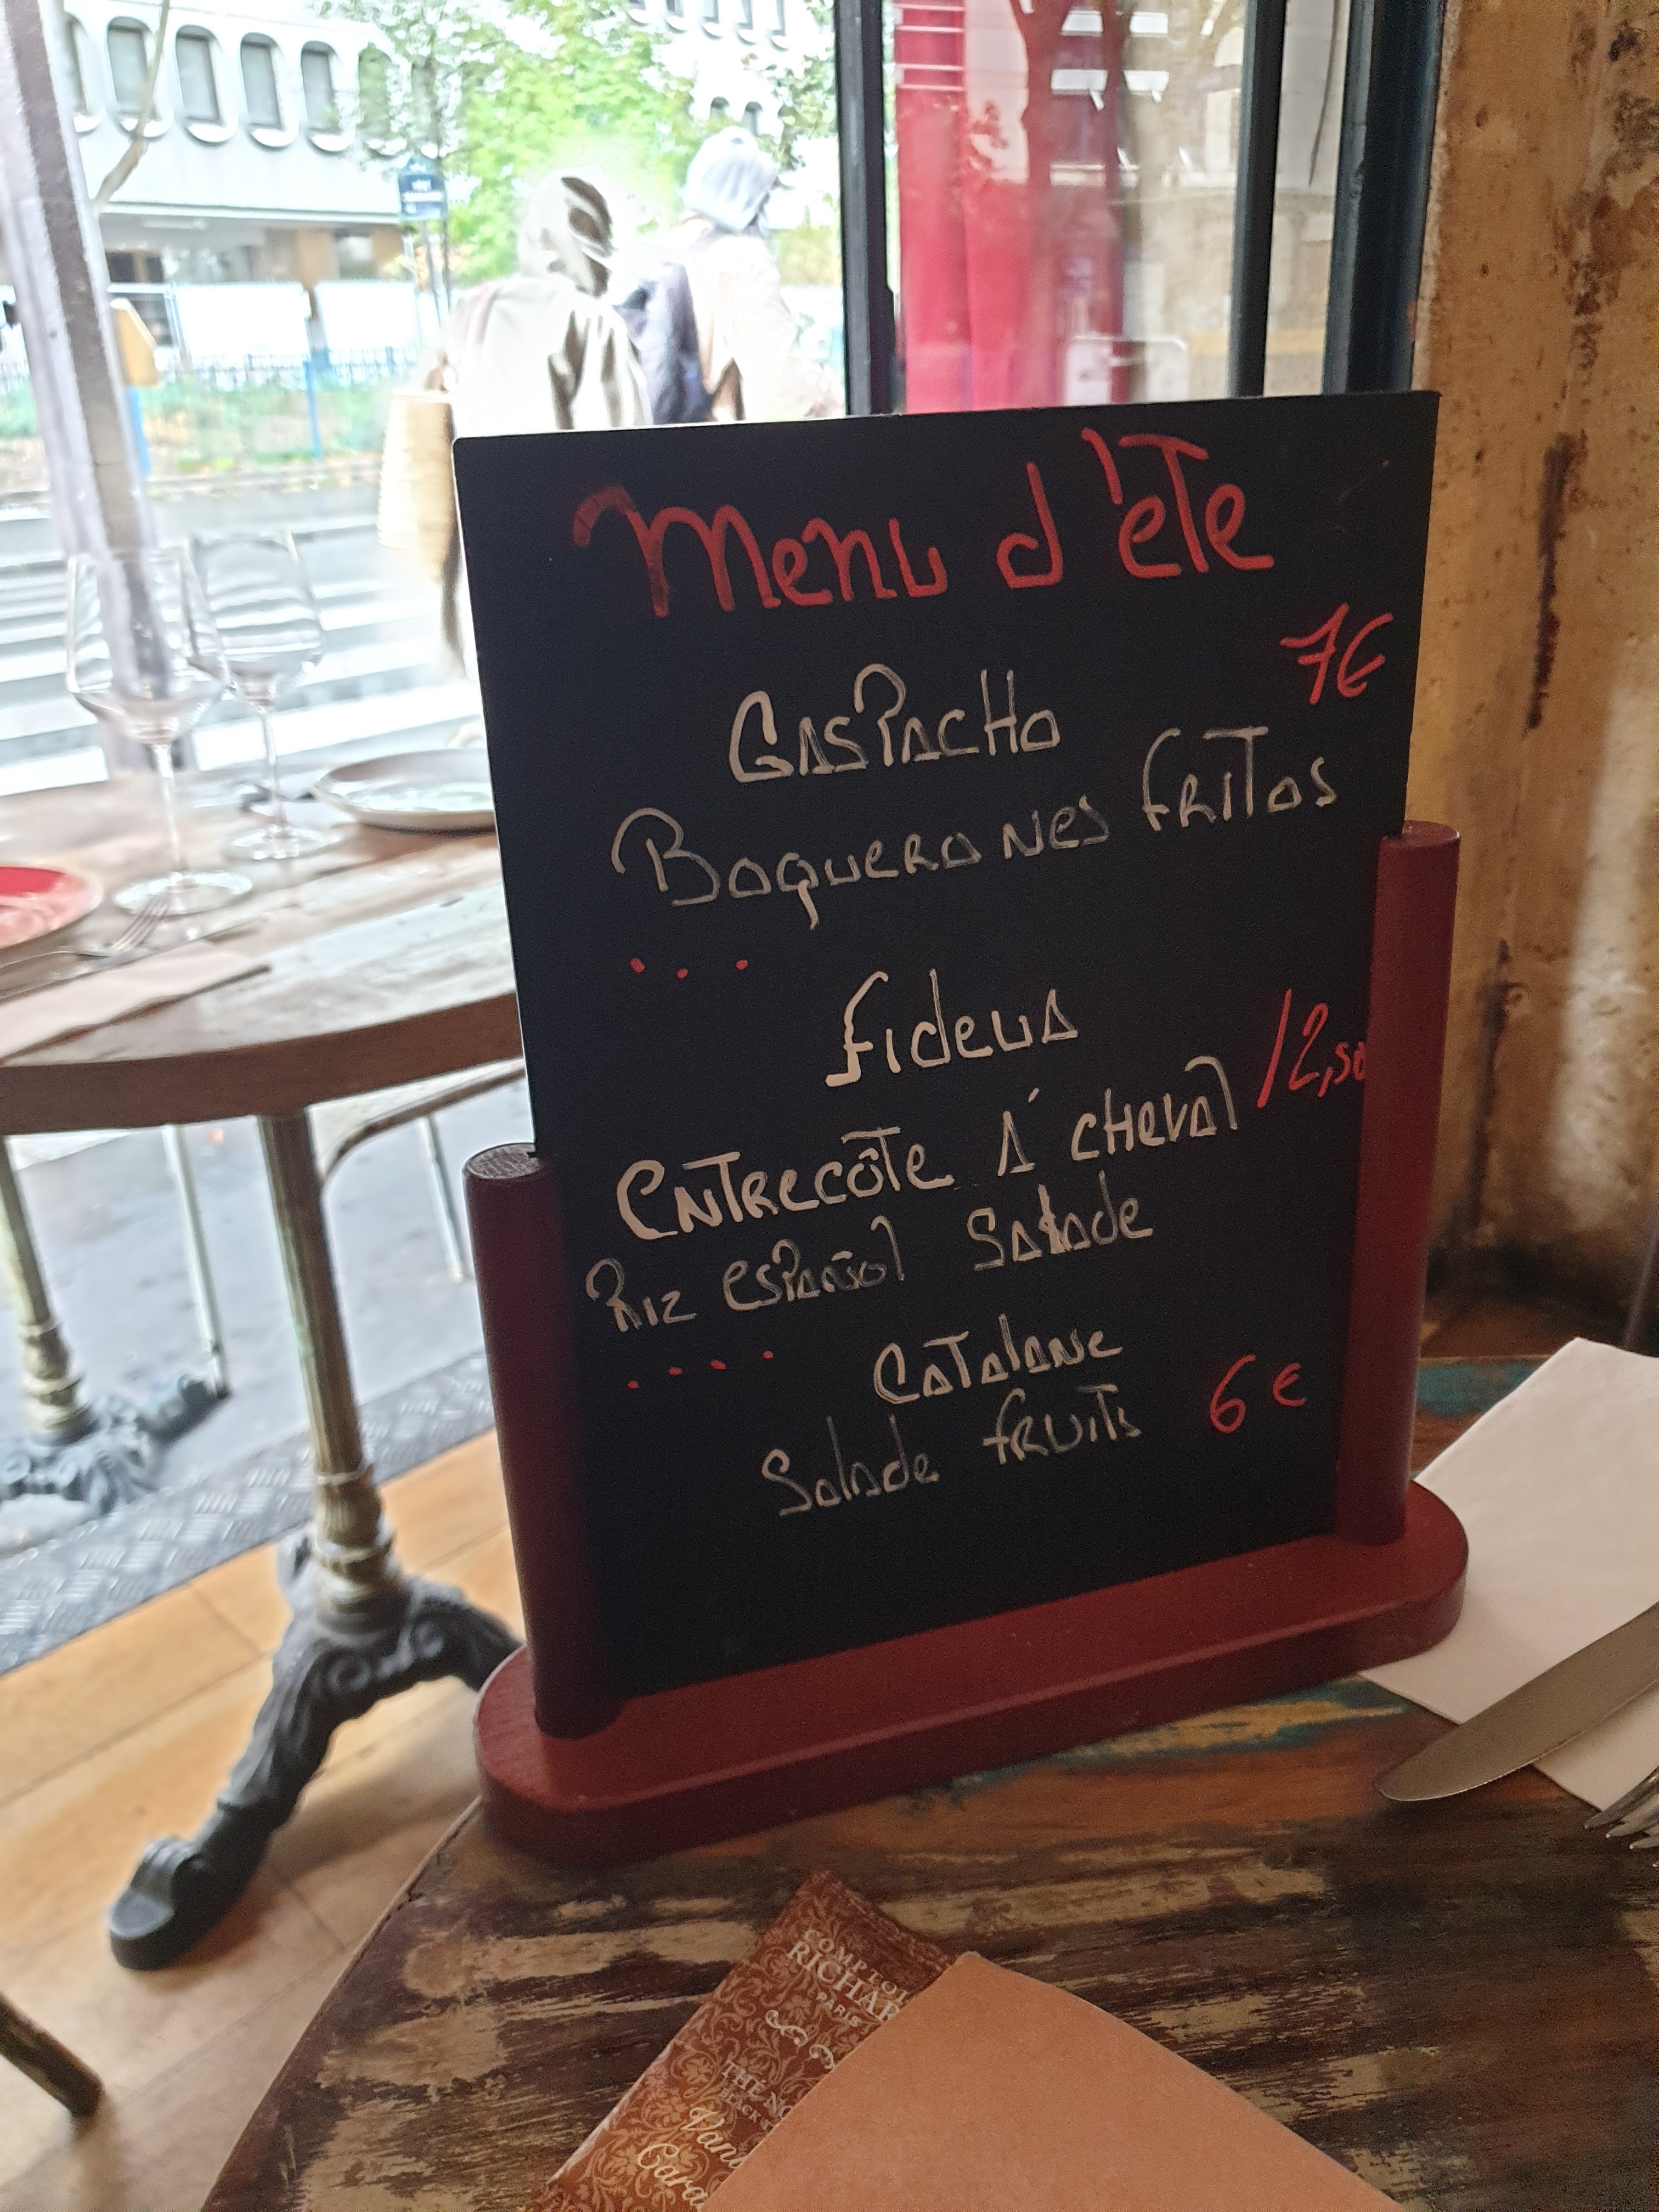 Menu d'ete
7€
GASPACHO
BOQUERONES FRITOS
...
Fideua
12,50
ENTRECÔTE À CHEVAL
RIZ ESPAÑOL SALADE
....
CATALANE
Salade FRUITS 6€
COMPTOI
RICHAR
PARIS
THÉ NO
BLACK T
Vani
Cara